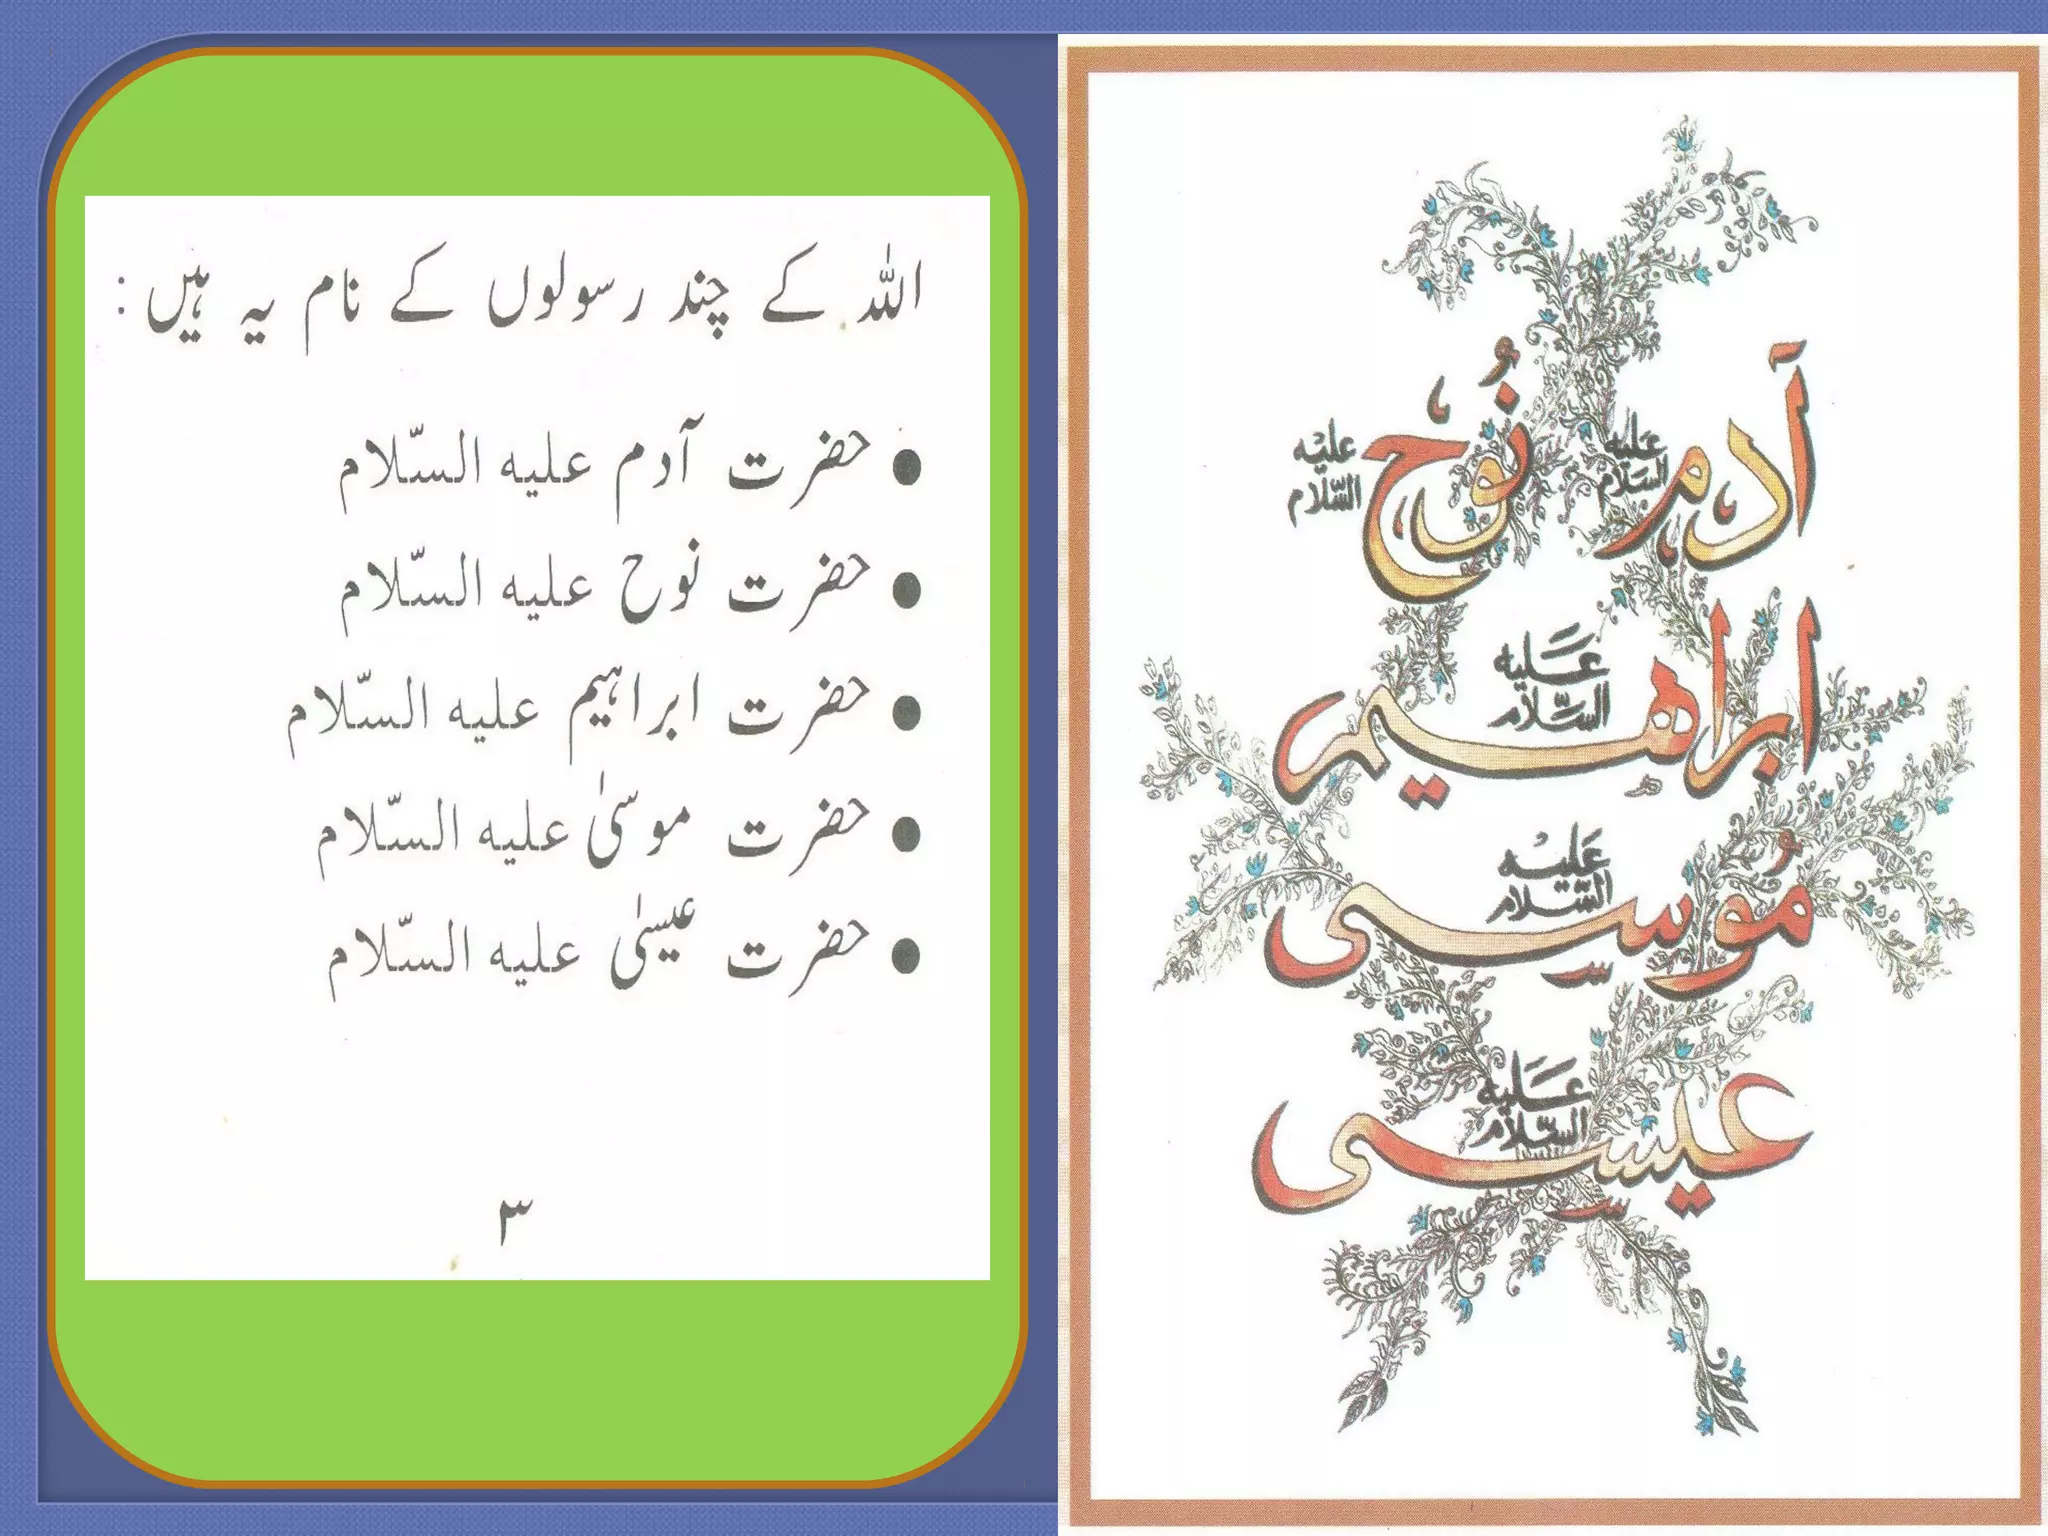 اللہ کے چند رسولوں کے نام یہ ہیں :
● حضرت آدم علیہ السّلام
● حضرت نوح علیہ السّلام
● حضرت ابراہیم علیہ السّلام
● حضرت موسیٰ علیہ السّلام
● حضرت عیسیٰ علیہ السّلام
۳
آدم عَلَيْهِ السَّلَام نُوح عَلَيْهِ السَّلَام
ابراهيم عَلَيْهِ السَّلَام
مُوسى عَلَيْهِ السَّلَام
عيسى عَلَيْهِ السَّلَام